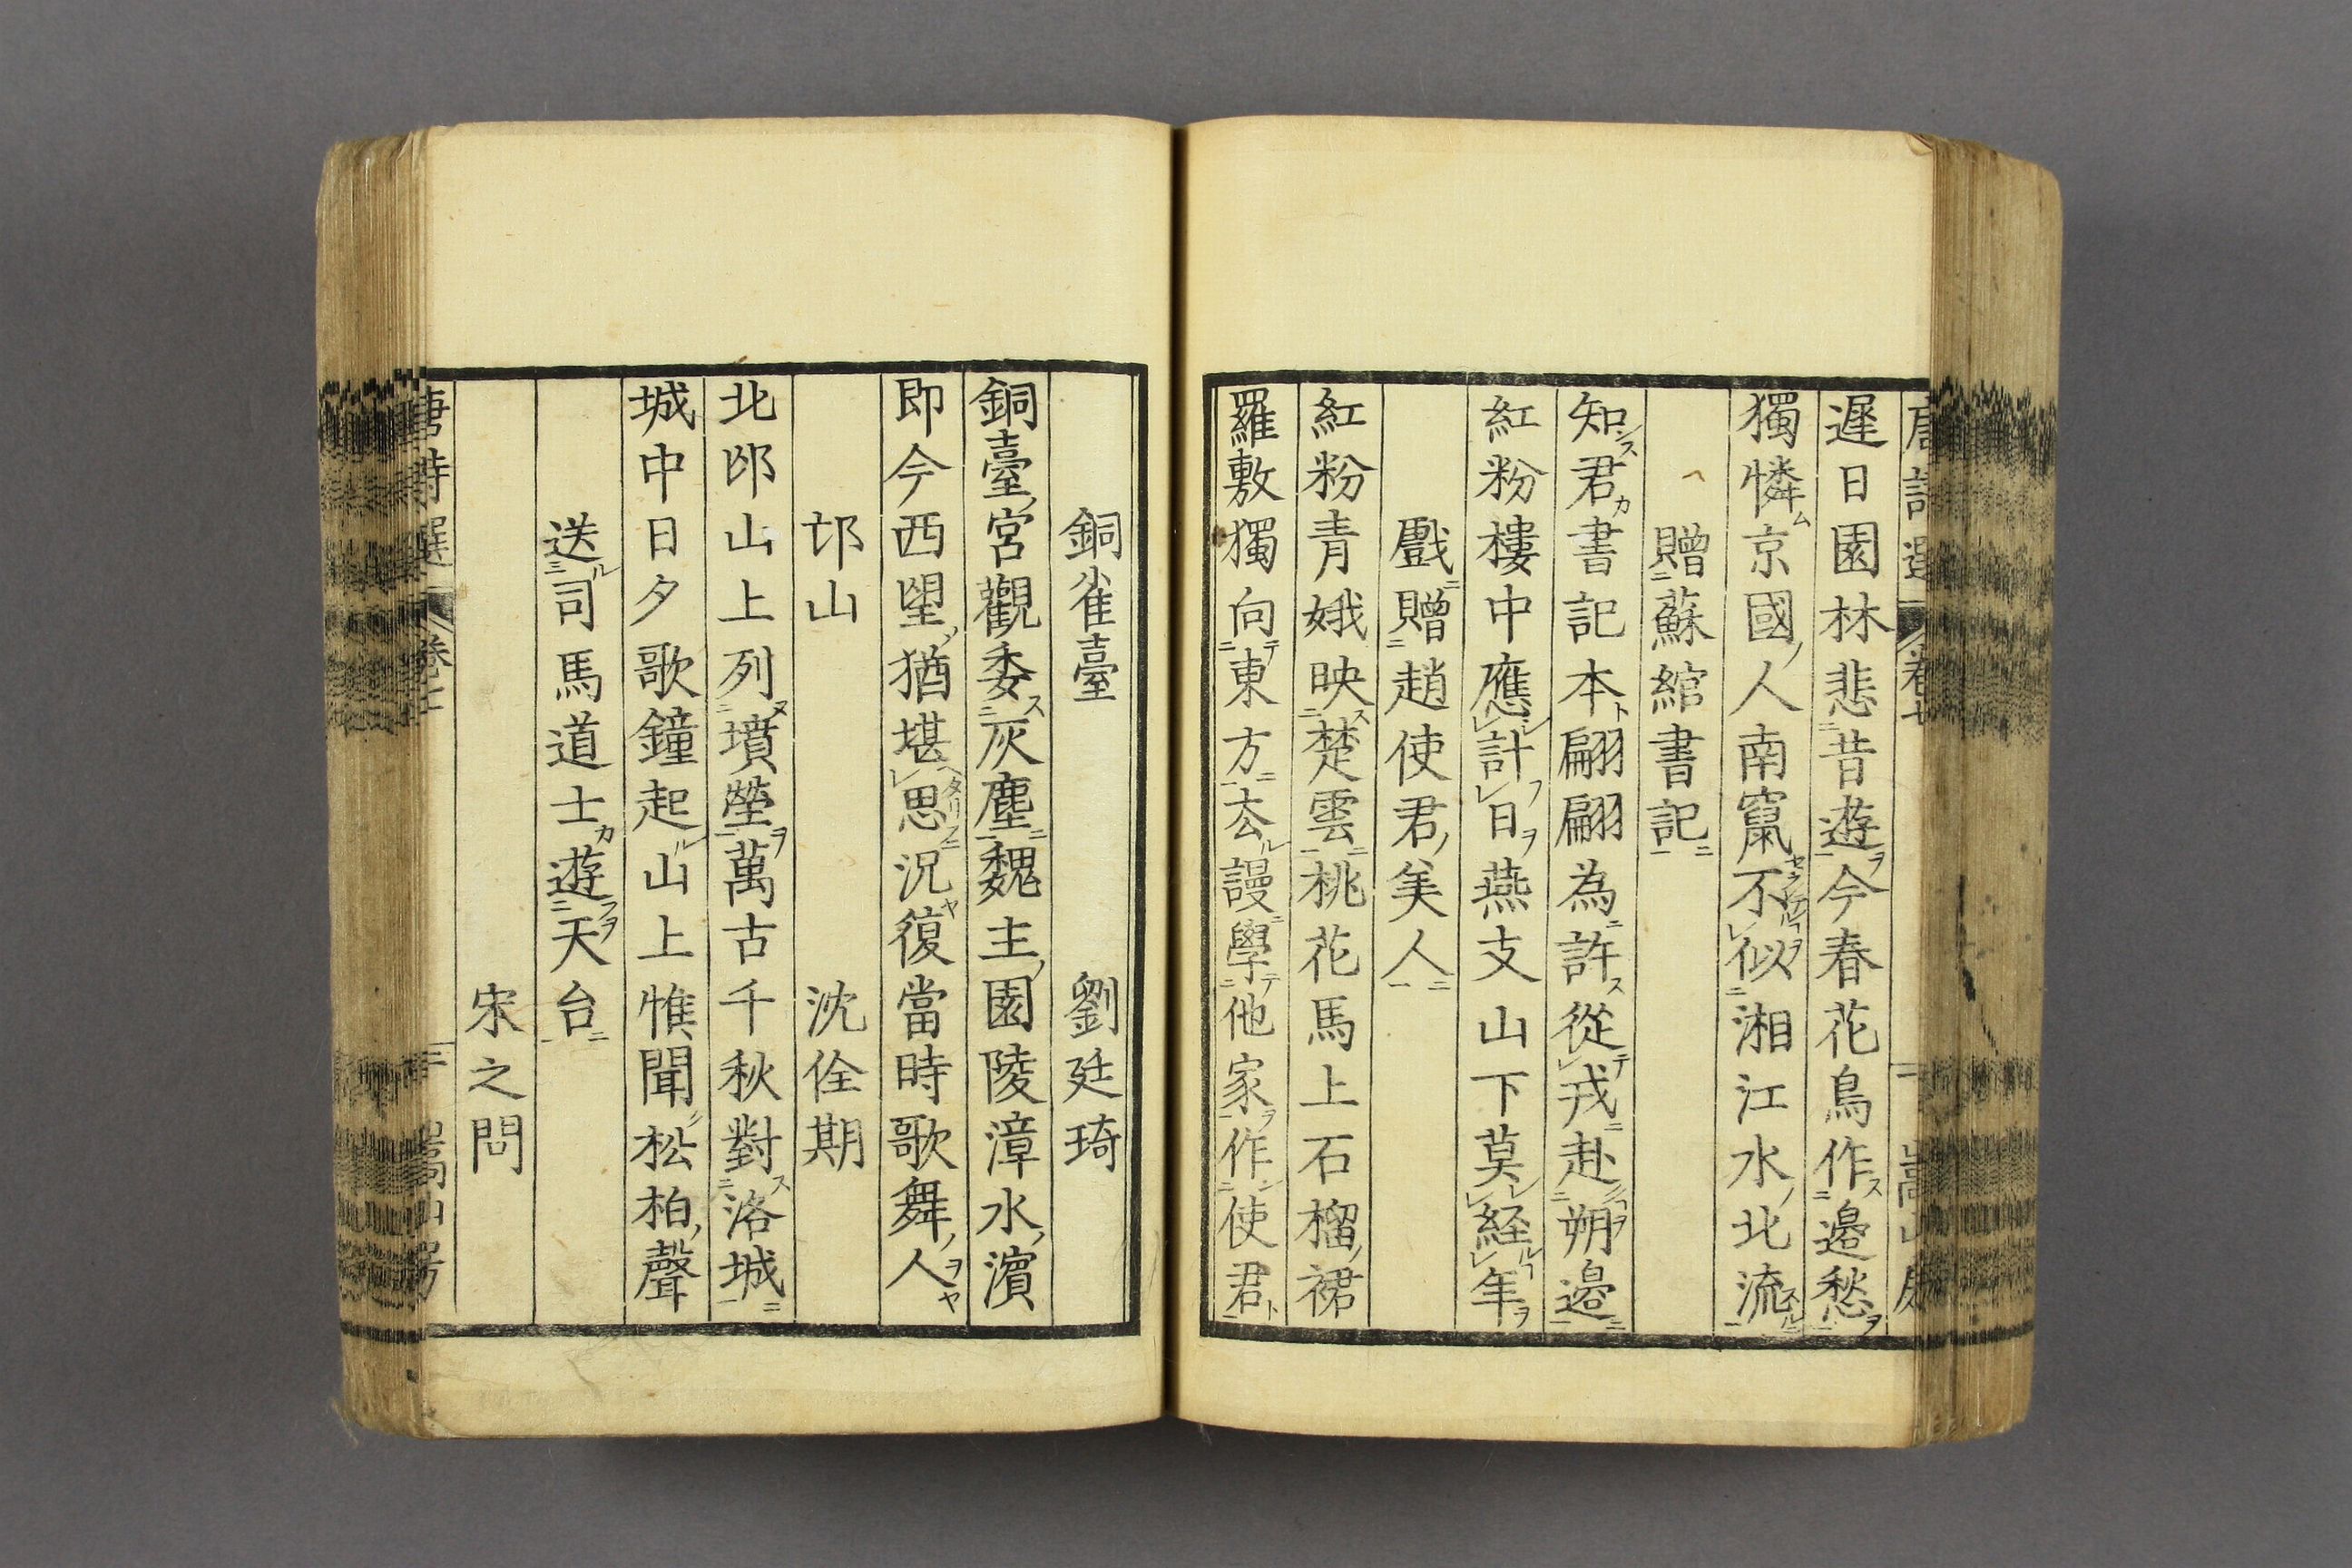 遲日園林悲昔遊今春花鳥作邉愁
獨憐京國人南竄不似湘江水北流
贈蘇綰書記
知君書記本翩翩為許從戎赴朔邉
紅粉樓中應計日燕支山下莫経年
戲贈趙使君美人
紅粉青娥映楚雲桃花馬上石榴裙
羅敷獨向東方去謾學他家作使君
銅雀臺 劉廷琦
銅臺宮觀委灰塵魏主園陵漳水濱
即今西望猶堪思況復當時歌舞人
邙山 沈佺期
北邙山上列墳塋萬古千秋對洛城
城中日夕歌鐘起山上惟聞松柏聲
送司馬道士遊天台
宋之問